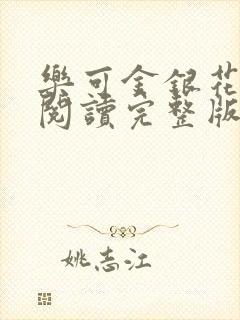 樂可金銀花
閱讀完整版
姚志江